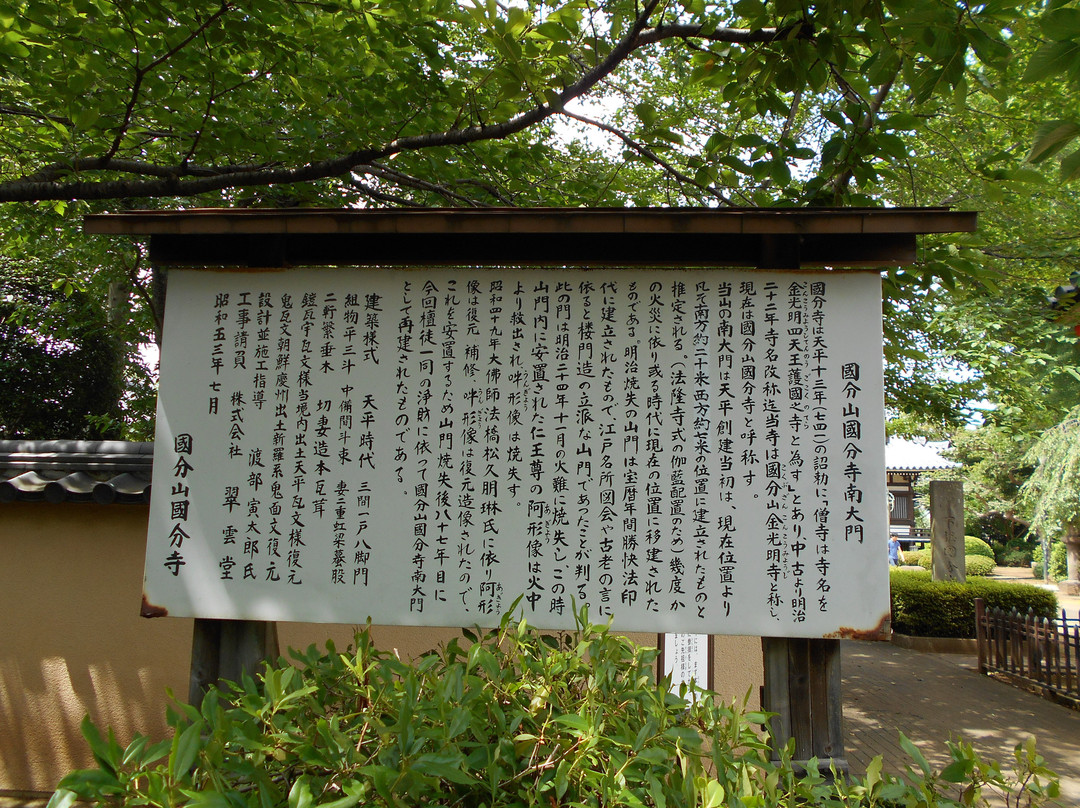 國分山國分寺南大門
國分寺は天平十三年(七四一)の詔勅に、僧寺は寺名を
金光明四天王護國之寺と為すとあり、中古より明治
二十二年寺名改称迄当寺は國分山金光明寺と称し、
現在は國分山國分寺と呼称す。
当山の南大門は天平創建当初は、現在位置より
凡そ南方約二十米西方約七米の位置に建立されたものと
推定される。(法隆寺式の伽藍配置のため)幾度か
の火災に依り或る時代に現在の位置に移建された
ものである。明治焼失の山門は宝暦年間勝快法印
代に建立されたもので、江戸名所図会や古老の言に
依ると楼門造の立派な山門であったことが判る。
此の門は明治二十四年十一月の火難に焼失し、この時
山門内に安置された仁王尊の阿形像は火中
より救出され吽形像は焼失す。
昭和四十九年大佛師法橋松久朋琳氏に依り阿形
像は復元補修、吽形像は復元造像されたので、
これを安置するため山門焼失後八十七年目に
今回檀徒一同の浄財に依って國分山國分寺南大門
として再建されたものである。
建築様式 天平時代 三間一戸八脚門
組物平三斗 中備間斗束 妻二重虹梁蟇股
二軒繁垂木 切妻造本瓦茸
鐙瓦宇瓦文様当境内出土天平瓦文様復元
鬼瓦文朝鮮慶州出土新羅系鬼面文復元
設計並施工指導 渡部寅太郎氏
工事請負 株式会社 翠雲堂
昭和五三年七月
國分山國分寺